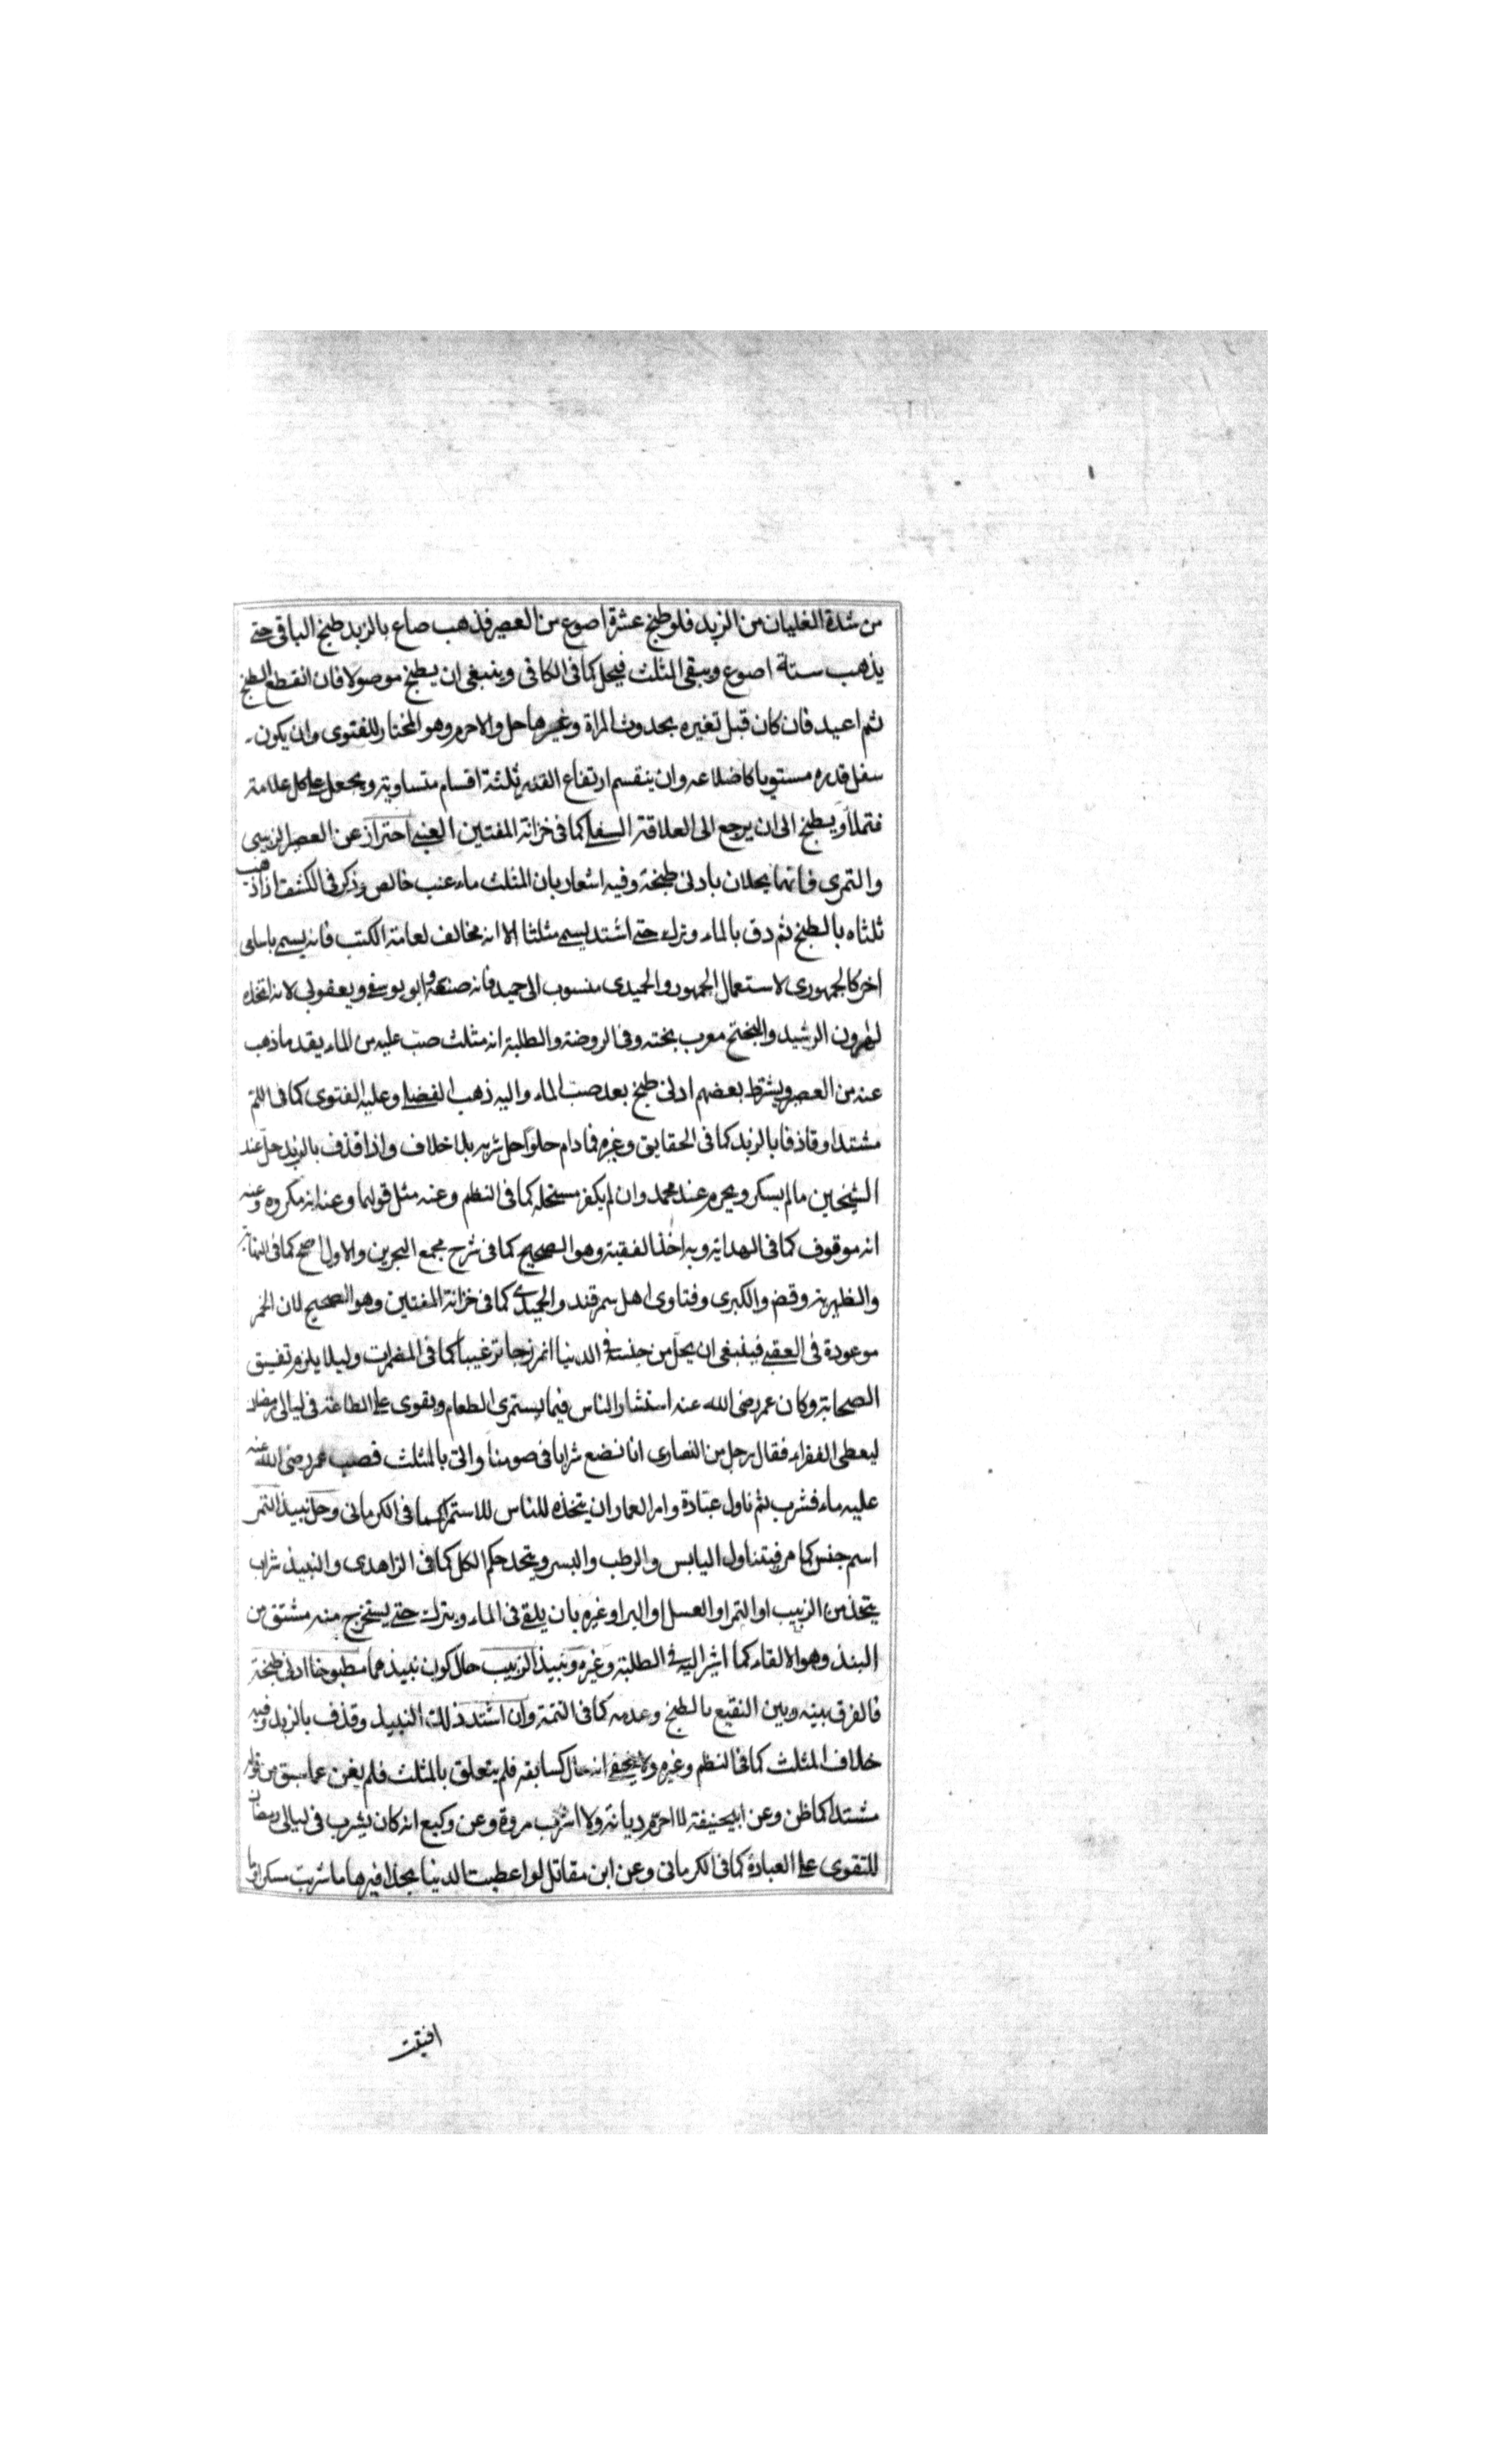 من شدة الغليان من الزبد فلو طبخ عشرة اصوع من العصير فذهب صاع بالزبد طبخ الباقى حتے
يذهب ستة اصوع ويبقى الثلث فيحل كما فى الكافى وينبغى ان يطبخ موصولا فان انقطع الطبخ
ثم اعيد فان كان قبل تغيره بحدوث المراة وغيرها حل والا حرم وهو المختار للفتوى وان يكون
سفل قدره مستويا كاضلاعه وان ينقسم ارتفاع القدر ثلثة اقسام متساوية ويجعل على كل علامة
فتملأ ويطبخ الى ان يرجع الى العلاقة السفلے كما فى خزانة المفتين العنبے احتراز عن العصير الزبيبى
والتمرى فانهما يحلان بادنى طبخة وفيه اشعار بان المثلث ماء عنب خالص وذكر فى الكشف اذا ذهب
ثلثاه بالطبخ ثم دق بالماء وترك حتے اشتد يسمے مثلثا الا انه مخالف لعامة الكتب فانه يسمے باسامى
اخر كالجمهورى لاستعمال الجمهور والحميدى منسوب الى حميد فانه صنعه وابو يوسفے ويعقوبى لانه اتخذه
لهرون الرشيد والبختج معرب بخته وفى الروضة والطلبة انه مثلث صب عليه من الماء بقدر ما ذهب
عنه من العصير ويشترط بعضهم ادنى طبخ بعد صب الماء واليه ذهب الفضلے وعليه الفتوى كما فى
مشتدا وقاذفا بالزبد كما فى الحقايق وغيره فما دام حلوا حل شربه بلا خلاف واذا قذف بالزبد حل عند
الشيخين ما لم يسكر ويحرم عند محمد وان لم يكفر مستحله كما فى النظم وعنه مثل قولهما وعنه انه مكروه وعنه
انه موقوف كما فى الهداية وبه اخذ الفقيه وهو الصحيح كما فى شرح مجمع البحرين والاول اصح كما فى النهاية
والظهيرية وقض والكبرى وفتاوى اهل سمرقند والحميدے كما فى خزانة المفتين وهو الصحيح لان الخمر
موعودة فى العقبے فينبغى ان يحل من جنسه فى الدنيا انموذجا ترغيبا كما فى المضمرات وليلا يلزم تفسيق
الصحابة وكان عمر رضى الله عنه استشار الناس فيما يستمرى الطعام ويقوى على الطاعة فى ليالى رمضان
ليعطى الفقراء فقال رجل من النصارى انا نضع شرابا فى صومنا واتى بالمثلث فصب عمر رضى الله عنه
عليه ماء فشرب ثم ناول عبادة وامر العمار ان يتخذه للناس للاستمرا كما فى الكرمانى وحل نبيذ التمر
اسم جنس كما مر فيتناول اليابس والرطب والبسر ويتحد حكم الكل كما فى الزاهدى والنبيذ شراب
يتخذ من الزبيب او التمر او العسل او البر او غيره بان يلقے فى الماء ويترك حتے يستخرج منه مشتق من
النبذ وهو الالقاء كما اشير اليه فى الطلبة وغيره ونبيذ الزبيب حال كون نبيذهما مطبوخا ادنى طبخة
فالفرق بينه وبين النقيع بالطبخ وعدمه كما فى التتمة وان اشتد ذلك النبيذ وقذف بالزبد وفيه
خلاف المثلث كما فى النظم وغيره ولا يخفے انه حال كسابقه فلم يتعلق بالمثلث فلم يغن عما سبق من قوله
مشتدا كما ظن وعن ابيحنيفة لا احرم ديانة ولا اشرب مروة وعن وكيع انه كان يشرب فى ليالى رمضان
للتقوى على العبادة كما فى الكرمانى وعن ابن مقاتل لو اعطيت الدنيا بحذافيرها ما شربت مسكرا
افتيت